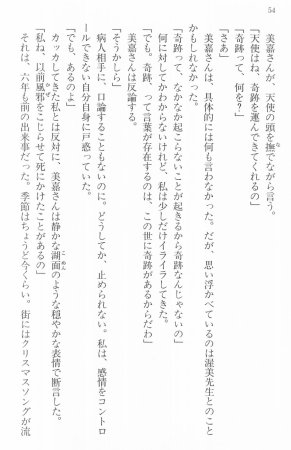 54
美嘉さんが、天使の頭を撫でながら言う。
「天使はね、奇跡を運んできてくれるの」
「奇跡って、何を？」
「さあ」
美嘉さんは、具体的には何も言わなかった。だが、思い浮かべているのは渥美先生とのこと
かもしれなかった。
「奇跡って、なかなか起こらないことが起きるから奇跡なんじゃないの」
何に対してかわからないけれど、私は少しだけイライラしてきた。
「でも。奇跡、って言葉が存在するのは、この世に奇跡があるからだわ」
美嘉さんは反論する。
「そうかしら」
病人相手に、口論することもないのに。どうしてか、止められない。私は、感情をコントロ
ールできない自分自身に戸惑っていた。
「でも、あるのよ」
カッカしてきた私とは反対に、美嘉さんは静かな湖面のような穏やかな表情で断言した。
「私ね、以前風邪をこじらせて死にかけたことがあるの」
それは、六年も前の出来事だった。季節はちょうど今くらい。街にはクリスマスソングが流